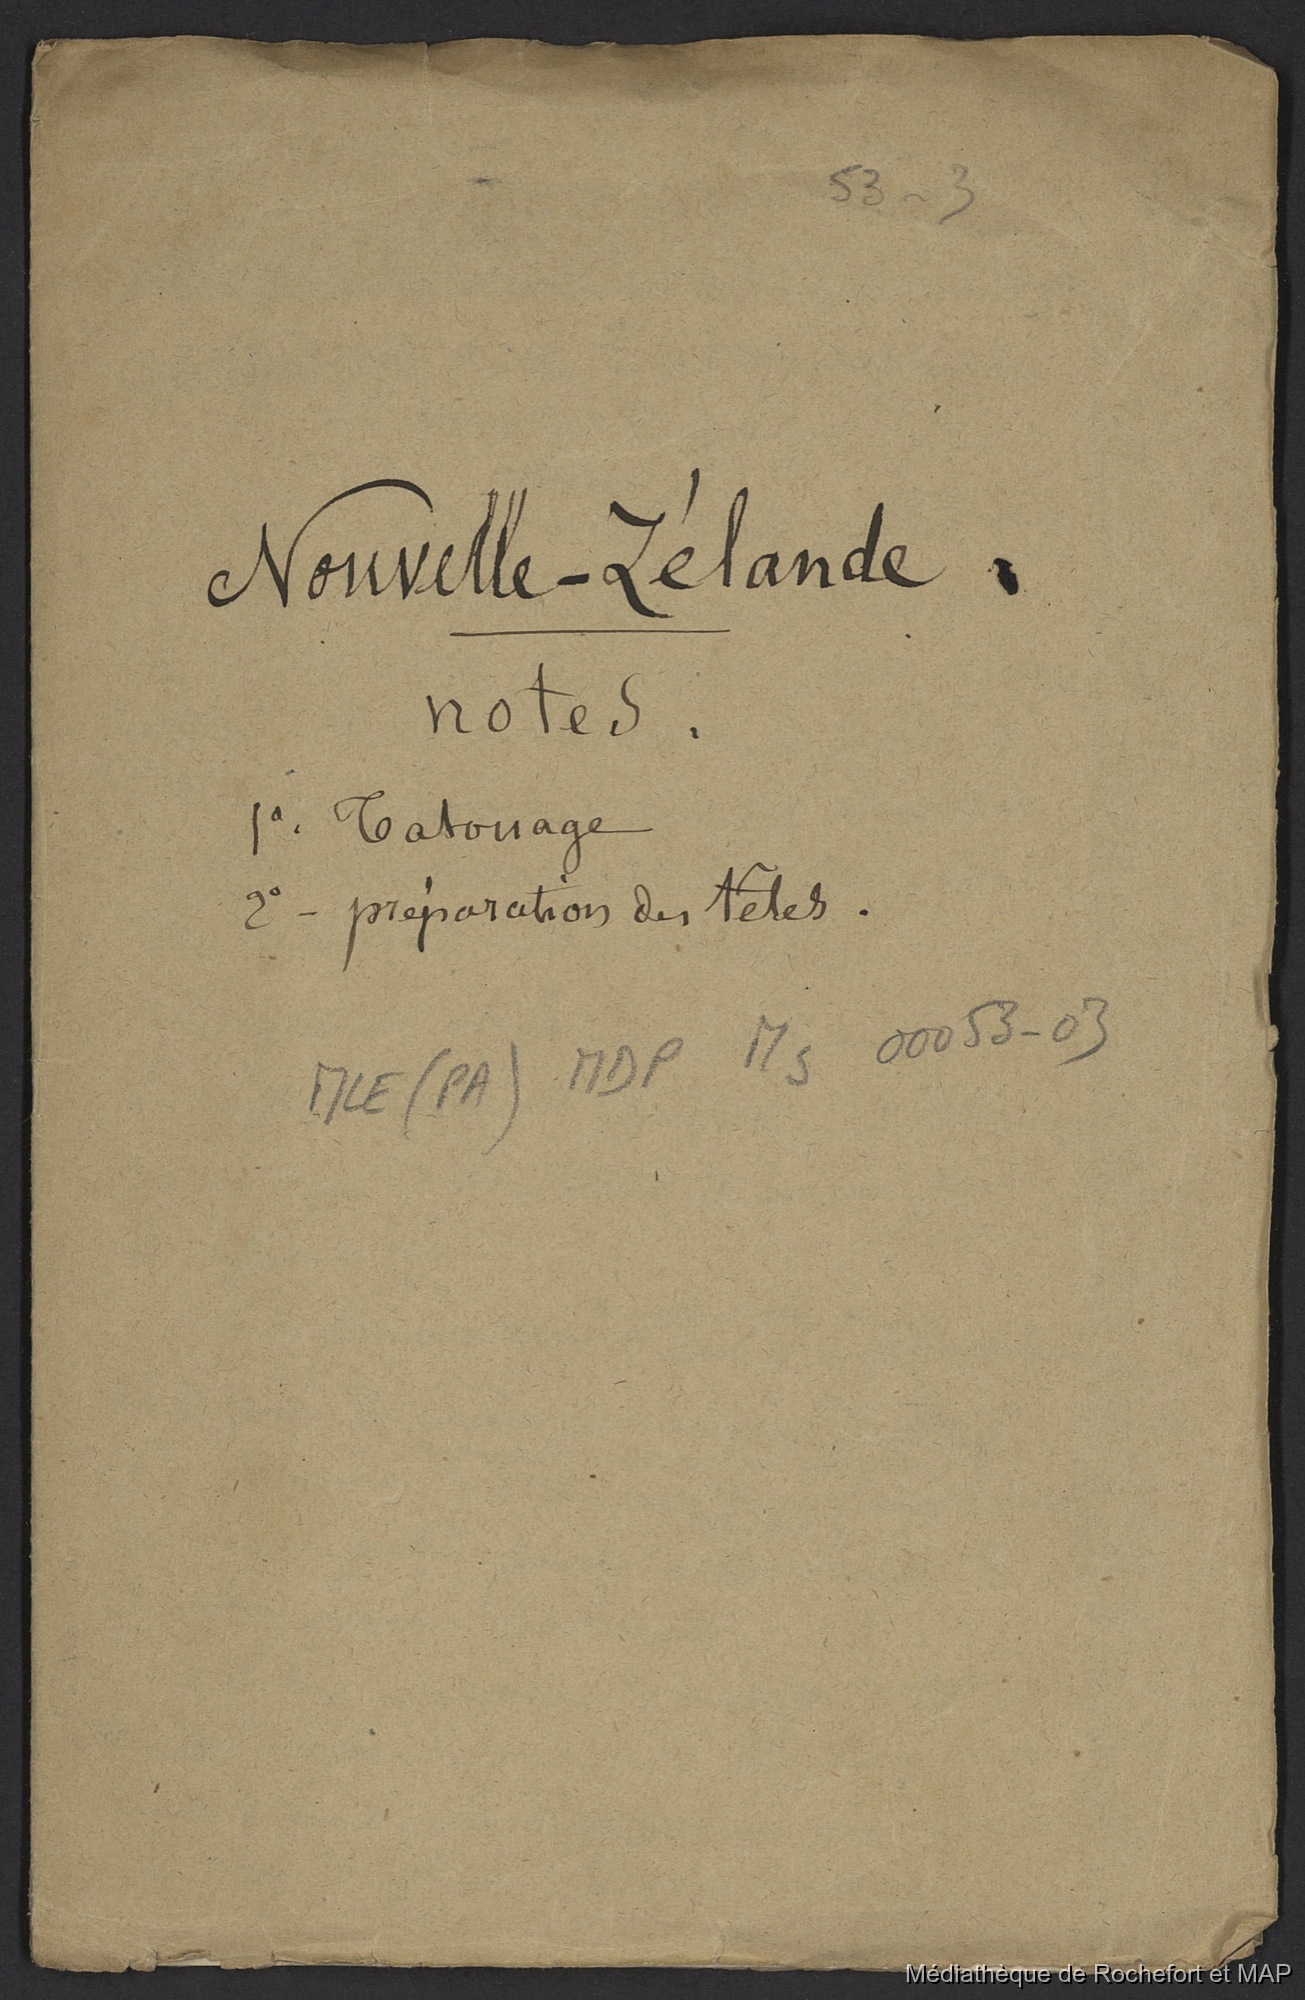 53-3
Nouvelle-Zélande.
notes.
1°. Tatouage
2° - préparation des têtes.
MLE (PA) MDP Ms 00053-03
Médiathèque de Rochefort et MAP